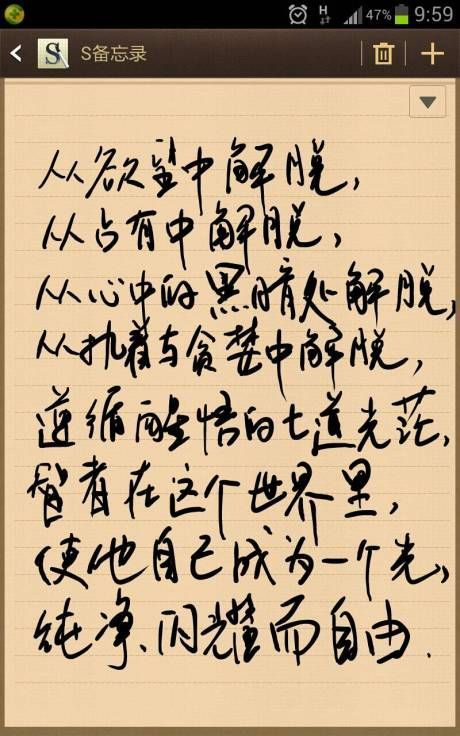 H 47% 9:59
S备忘录
从欲望中解脱，
从占有中解脱，
从心中的黑暗处解脱，
从执着与贪婪中解脱，
遵循醒悟的七道光茫，
智者在这个世界里，
使他自己成为一个光，
纯净、闪耀而自由.